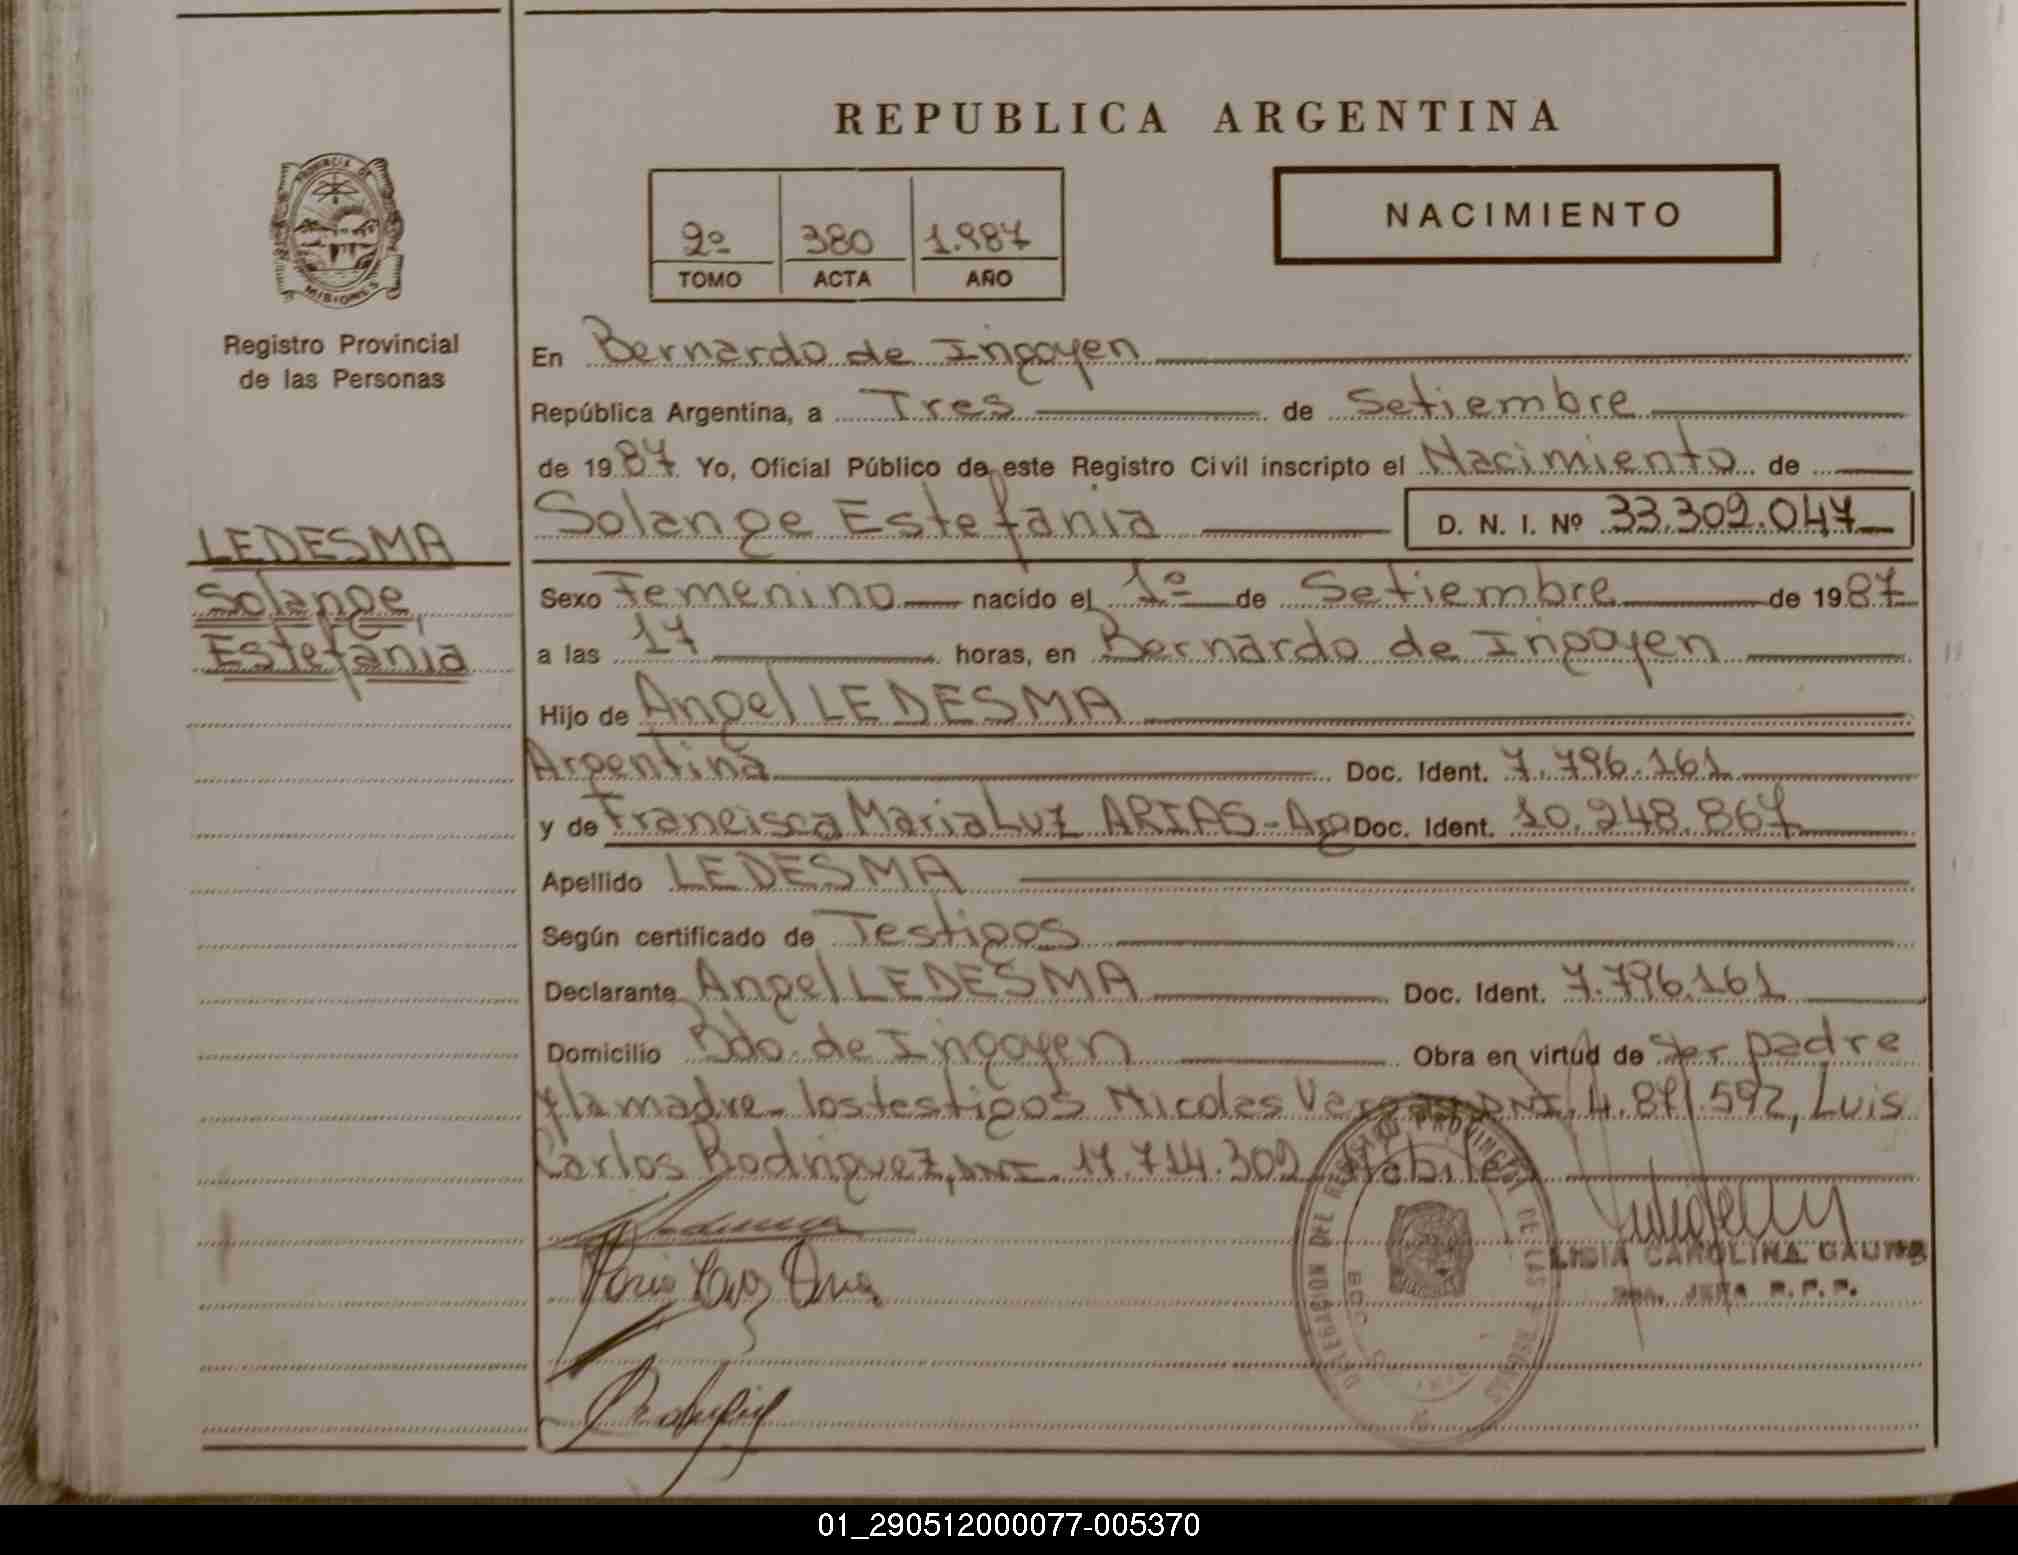 REPUBLICA ARGENTINA
PROVINCIA DE MISIONES
Registro Provincial
de las Personas
2º 380 1.987
TOMO ACTA AÑO
NACIMIENTO
En Bernardo de Irigoyen
República Argentina, a Tres de Setiembre
de 1987 Yo, Oficial Público de este Registro Civil inscripto el Nacimiento de
Solange Estefania D. N. I. Nº 33.309.047
LEDESMA
Solange,
Estefania
Sexo Femenino nacido el 1º de Setiembre de 1987
a las 17 horas, en Bernardo de Irigoyen
Hijo de Angel LEDESMA
Argentina Doc. Ident. 7.796.161
y de Francisca Maria Luz ARIAS - Arg Doc. Ident. 10.248.867
Apellido LEDESMA
Según certificado de Testigos
Declarante Angel LEDESMA Doc. Ident. 7.796.161
Domicilio Bdo. de Irigoyen Obra en virtud de ser padre
y la madre - los testigos Nicolas DNI. 592, Luis
Carlos Rodriguez, DNI. 17.714.302 Habiles
Ledesma
Maria Luz Arias
LIGIA CAROLINA GAUNA
JEFA R.P.P.
DELEGACION DEL REGISTRO PROVINCIAL DE LAS PERSONAS
01_290512000077-005370